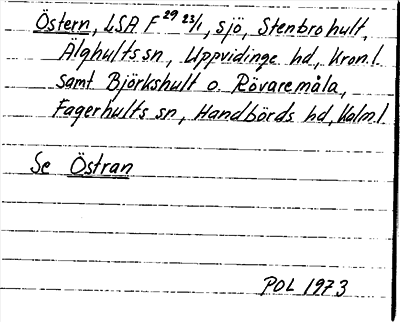 Östern, LSA F 29 23/1, sjö, Stenbrohult,
Älghults sn, Uppvidinge hd, Kron.l.
samt Björkshult o. Rövaremåla,
Fagerhults sn, Handbörds hd, Kalm.l
Se Östran
POL 1973